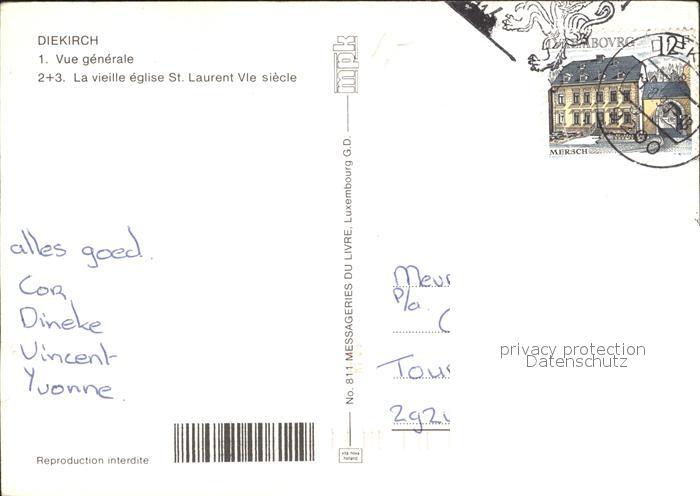 DIEKIRCH
1. Vue générale
2+3. La vieille église St. Laurent VIe siècle
mpk
No. 811 MESSAGERIES DU LIVRE, Luxembourg G.D.
12F
MERSCH
alles goed.
Cor
Dineke
Vincent
Yvonne.
Meur
P/a.
Tous
privacy protection
Datenschutz
Reproduction interdite